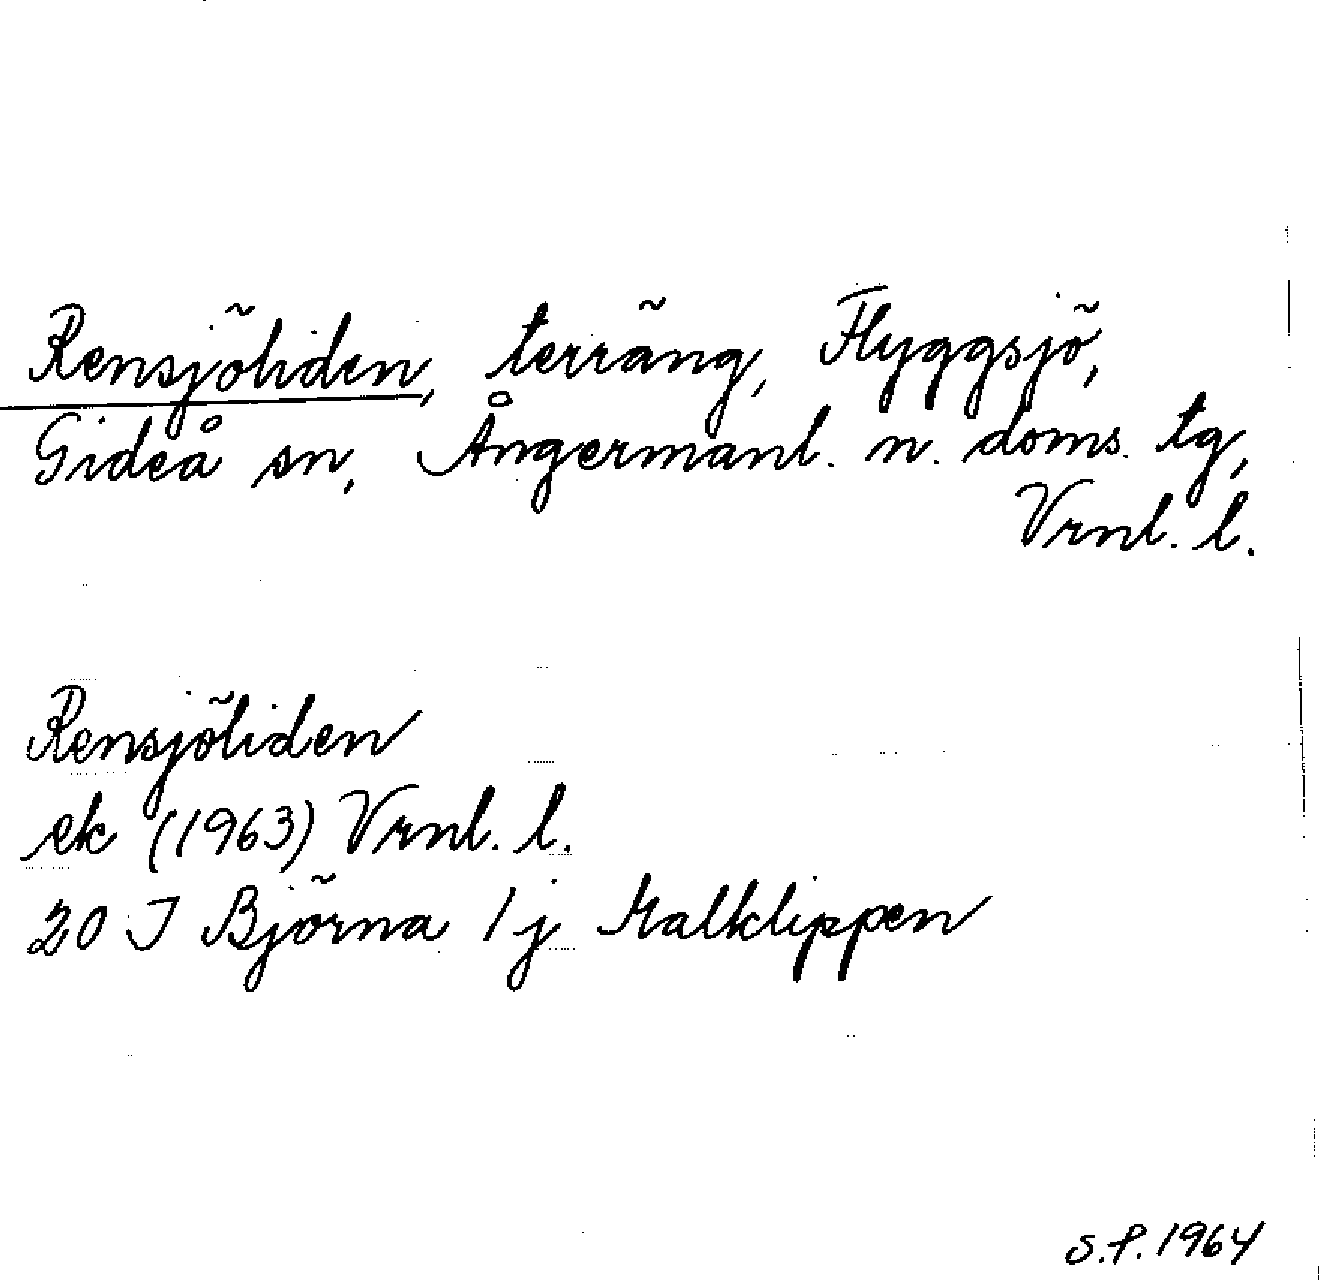 Rensjöliden, terräng, Flyggsjö,
Gideå sn, Ångermanl. n. doms. tg,
Vrnl. l.
Rensjöliden
ek (1963) Vrnl. l.
20 J Björna 1 j Kalklippen
S.P. 1964